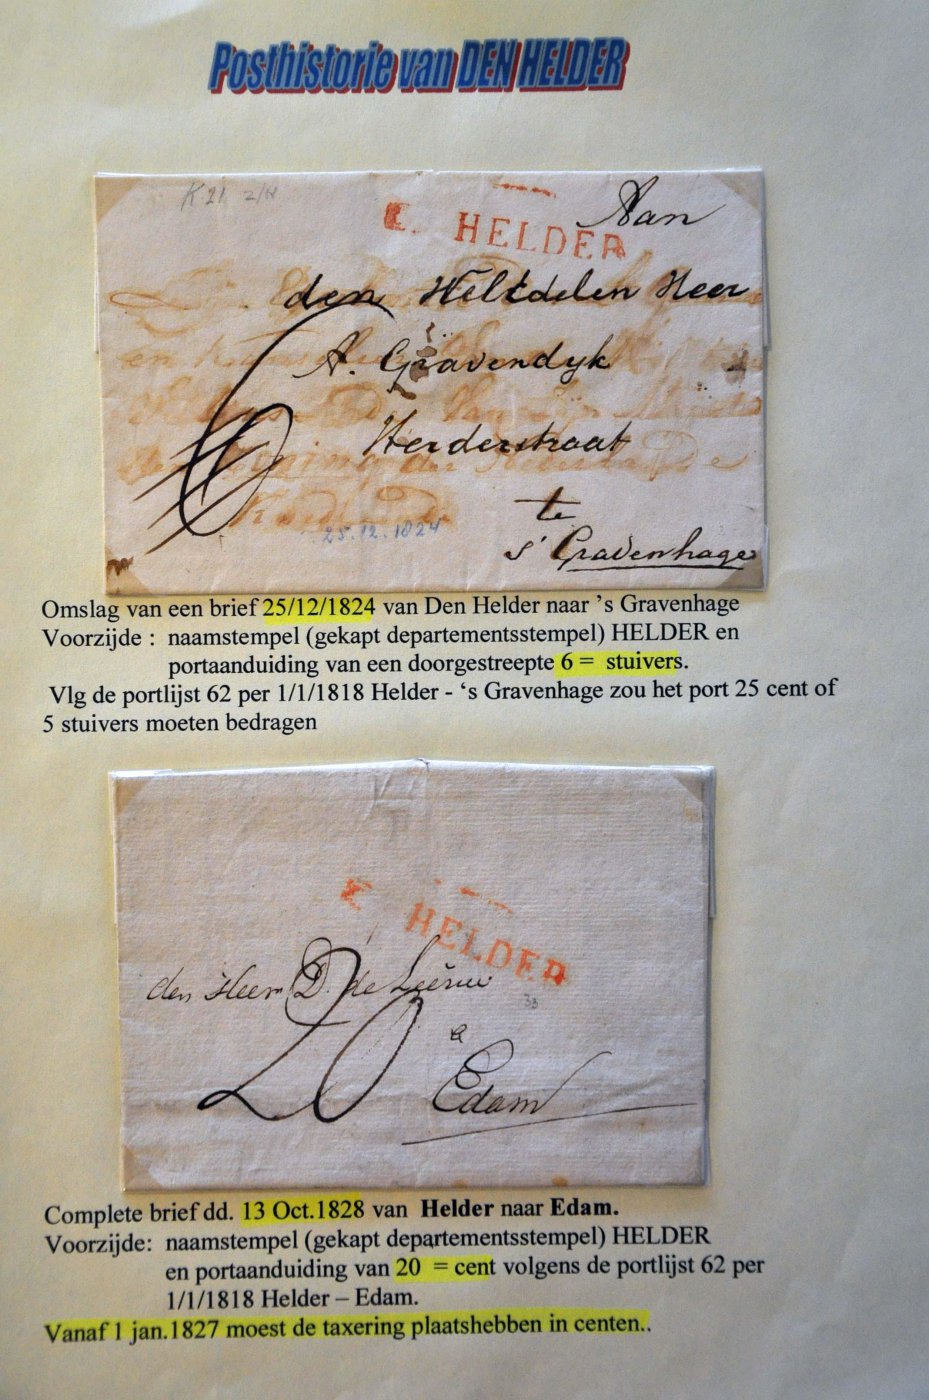 Posthistorie van DEN HELDER
K 21
HELDER
Aan
den WelEdelen Heer
A. Gravendyk
Herderstraat
te
s' Gravenhage
6
25.12.1824
Omslag van een brief 25/12/1824 van Den Helder naar ’s Gravenhage
Voorzijde : naamstempel (gekapt departementsstempel) HELDER en
portaanduiding van een doorgestreepte 6 = stuivers.
Vlg de portlijst 62 per 1/1/1818 Helder - ‘s Gravenhage zou het port 25 cent of
5 stuivers moeten bedragen
HELDER
den Heer D. de Leeuw
33
a
Edam
20
Complete brief dd. 13 Oct.1828 van Helder naar Edam.
Voorzijde: naamstempel (gekapt departementsstempel) HELDER
en portaanduiding van 20 = cent volgens de portlijst 62 per
1/1/1818 Helder – Edam.
Vanaf 1 jan.1827 moest de taxering plaatshebben in centen..